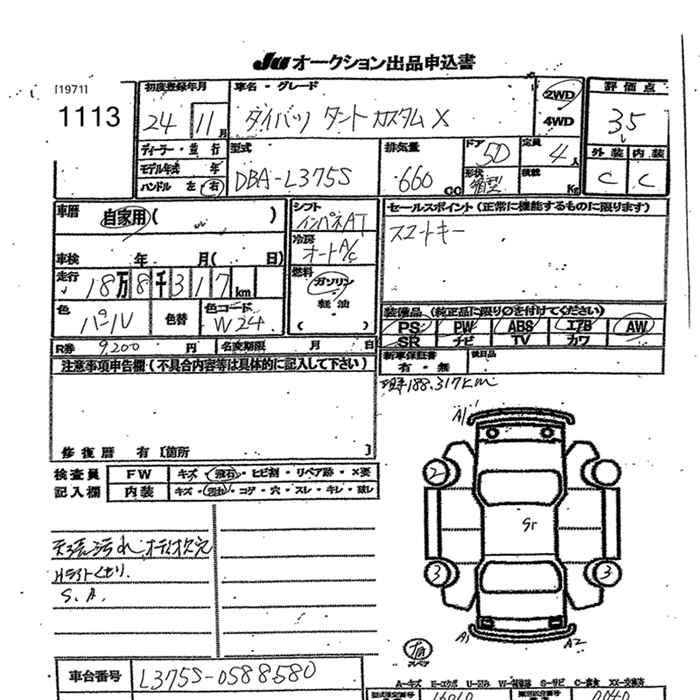 Ju オークション出品申込書
[1971]
1113
初度登録年月
24 11月
車名・グレード
ダイハツ タントカスタム X
2WD
4WD
評価点
3.5
ディーラー・並行
モデル年式 年
ハンドル 左・右
型式
DBA-L375S
排気量
660 CC
ドア
5D
形状
箱型
定員
4人
積載
Kg
外装 内装
C C
車歴
自家用( )
車検 年 月( 日)
走行
18万8千317km
色
パール
色替
色コード
W24
シフト
インパネAT
冷房
オートA/C
燃料
ガソリン
軽油
( )
セールスポイント(正常に機能するものに限ります)
スマートキー
装備品(純正品に限り○を付けてください)
PS PW ABS エアB AW
SR ナビ TV カワ
新車保証書
有・無
後日品
R券 9,200円
名変期限 月 日
注意事項申告欄(不具合内容等は具体的に記入して下さい)
現車188.317km
修復歴 有〔箇所 〕
検査員
記入欄
FW
キズ・飛石・ヒビ割・リペア跡・X要
内装
キズ・汚れ・コゲ・穴・スレ・キレ・破レ
天張汚れ オーディオ欠完
Hライトくもり.
S.A.
A1
2
Gr
3 3
A1 A2
車台番号
L375S-0588580
A-キズ E-エクボ U-凹み W-補修跡 S-サビ C-腐食 XX-交換済